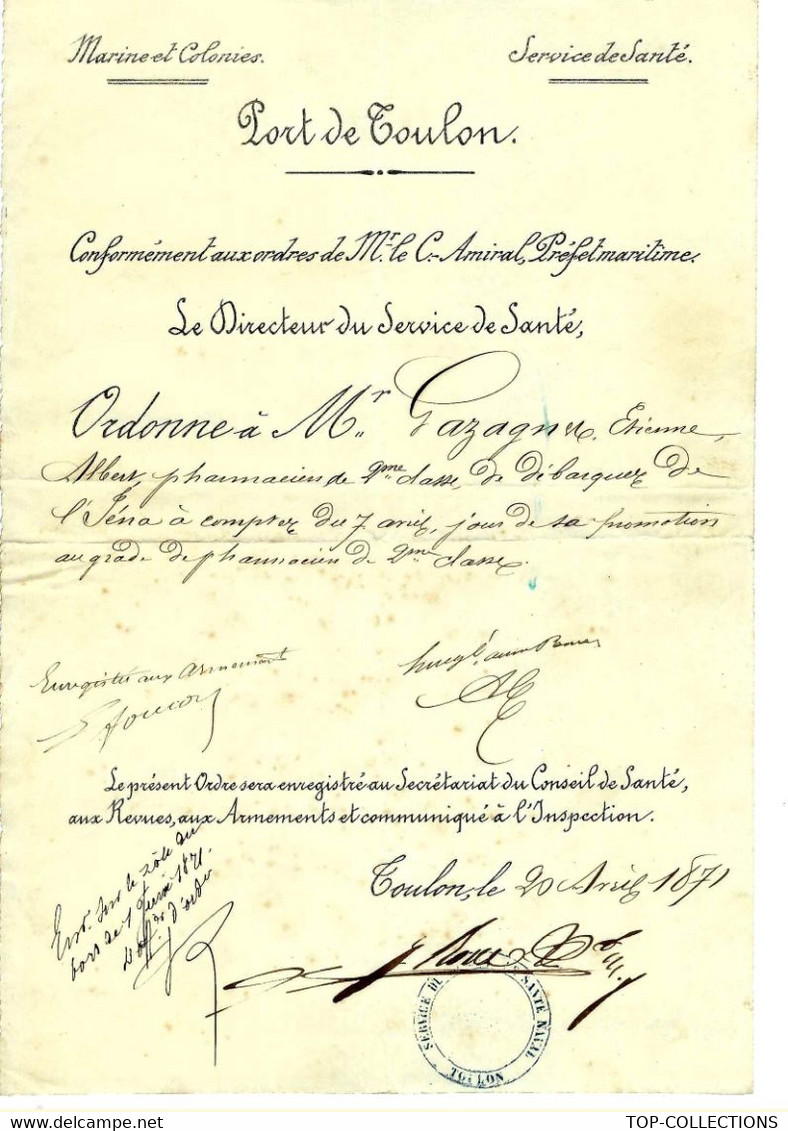 Marine et Colonies. Service de Santé.
Port de Toulon.
Conformément aux ordres de Mr. le C.-Amiral, Préfet maritime.
Le Directeur du Service de Santé,
Ordonne à Mr. Gazagnes, Etienne,
Albert, pharmacien de 2me classe, de débarquer de
l'Iéna à compter du 7 avril, jour de sa promotion
au grade de pharmacien de 2me classe.
Enregistré aux Armement
Le présent Ordre sera enregistré au Secrétariat du Conseil de Santé,
aux Revues, aux Armements et communiqué à l'Inspection.
Toulon, le 20 Avril 1871
sur le rôle du
bord
1871.
d'ordre
SERVICE DE SANTÉ NAVAL
TOULON
TOP-COLLECTIONS